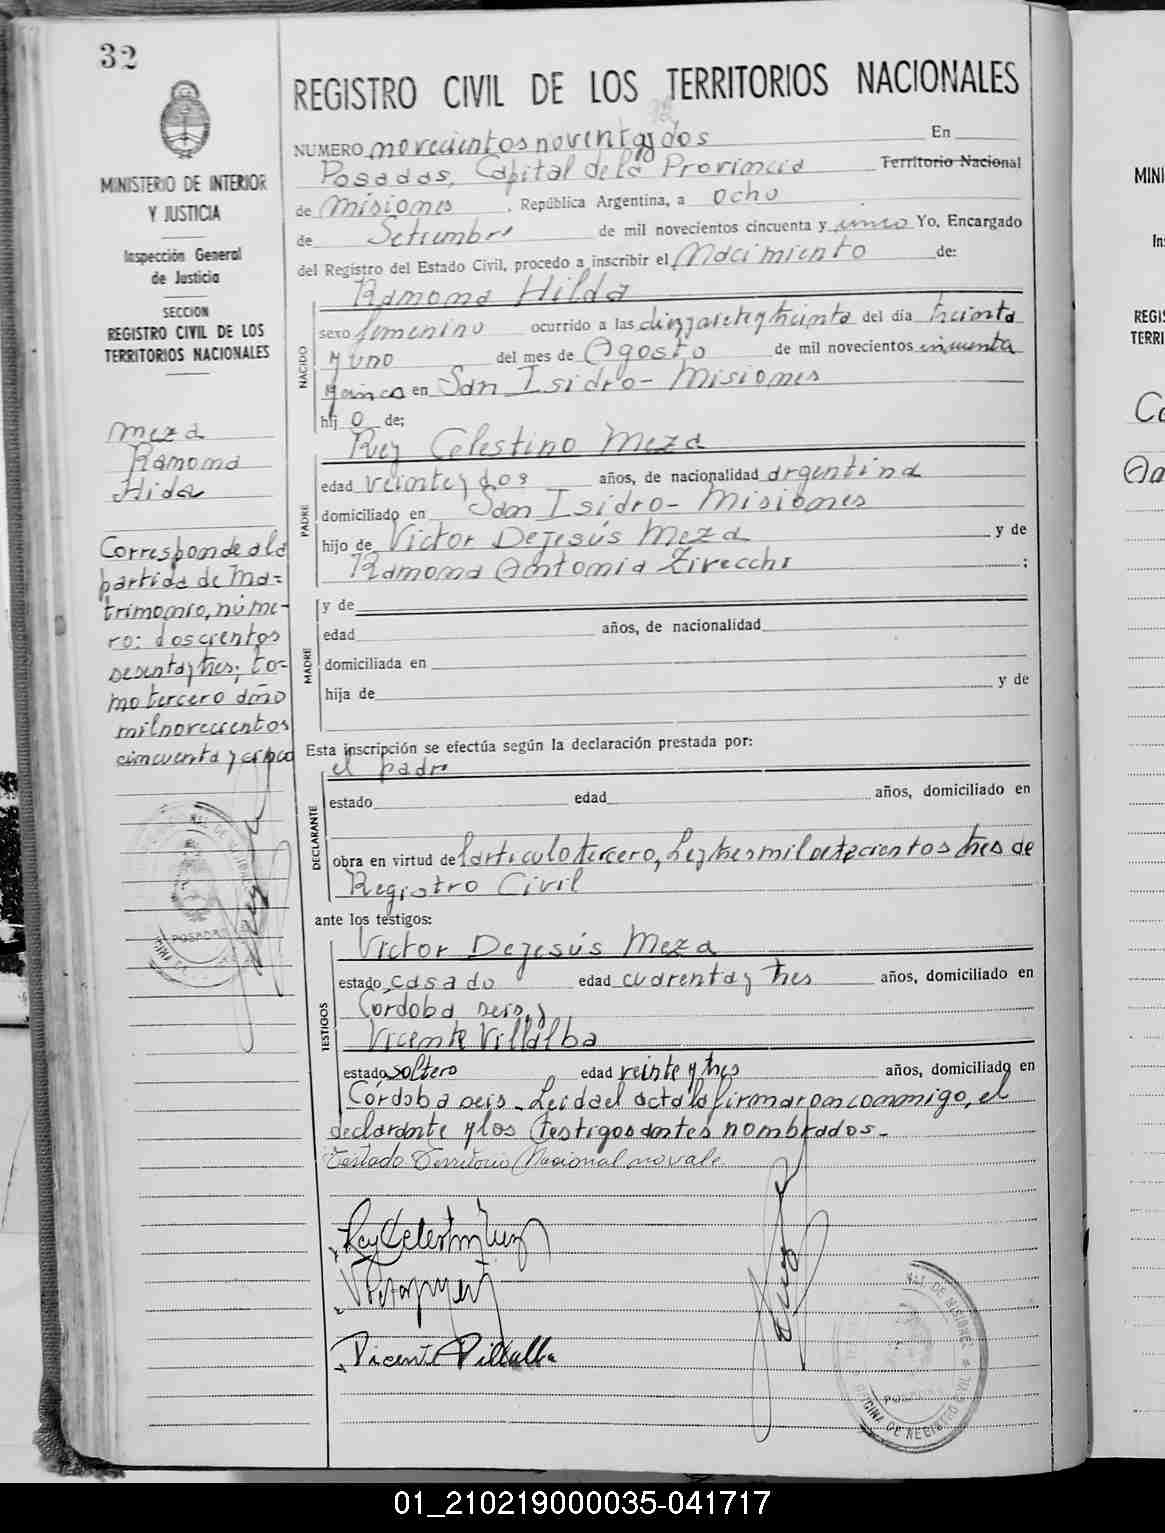 32
REGISTRO CIVIL DE LOS TERRITORIOS NACIONALES
MINISTERIO DE INTERIOR
Y JUSTICIA
Inspección General
de Justicia
SECCION
REGISTRO CIVIL DE LOS
TERRITORIOS NACIONALES
Meza
Ramona
Hida
Corresponde a la
partida de ma=
trimonio, núme-
ro: doscientos
sesenta y tres; to=
mo tercero año
mil novecientos
cincuenta y cinco
NUMERO novecientos noventa y dos En
Posadas, Capital de la Provincia Territorio Nacional
de Misiones, República Argentina, a ocho
de Setiembre de mil novecientos cincuenta y cinco Yo, Encargado
del Registro del Estado Civil, procedo a inscribir el Nacimiento de:
NACIDO
Ramona Hilda
sexo femenino ocurrido a las diez y siete y treinta del día treinta
y uno del mes de Agosto de mil novecientos cincuenta
y cinco en San Isidro - Misiones
hij o de;
PADRE
Rey Celestino Meza
edad veinte y dos años, de nacionalidad argentina
domiciliado en San Isidro - Misiones
hijo de Victor Dejesús Meza y de
Ramona Antonia Zirecchi ;
MADRE
y de
edad años, de nacionalidad
domiciliada en
hija de y de
Esta inscripción se efectúa según la declaración prestada por:
DECLARANTE
el padre
estado edad años, domiciliado en
obra en virtud del artículo tercero, Ley tres mil setecientos tres de
Registro Civil
ante los testigos:
TESTIGOS
Victor Dejesús Meza
estado casado edad cuarenta y tres años, domiciliado en
Córdoba seis, y
Vicente Villalba
estado soltero edad veinte y tres años, domiciliado en
Córdoba seis. Leída el acta la firmaron conmigo, el
declarante y los testigos antes nombrados.
Testado Territorio Nacional no vale
Rey Celestino Meza
Vicente Villalba
OFICINA DE REGISTRO CIVIL
POSADAS
01_210219000035-041717
MINI
REGIS
TERRI